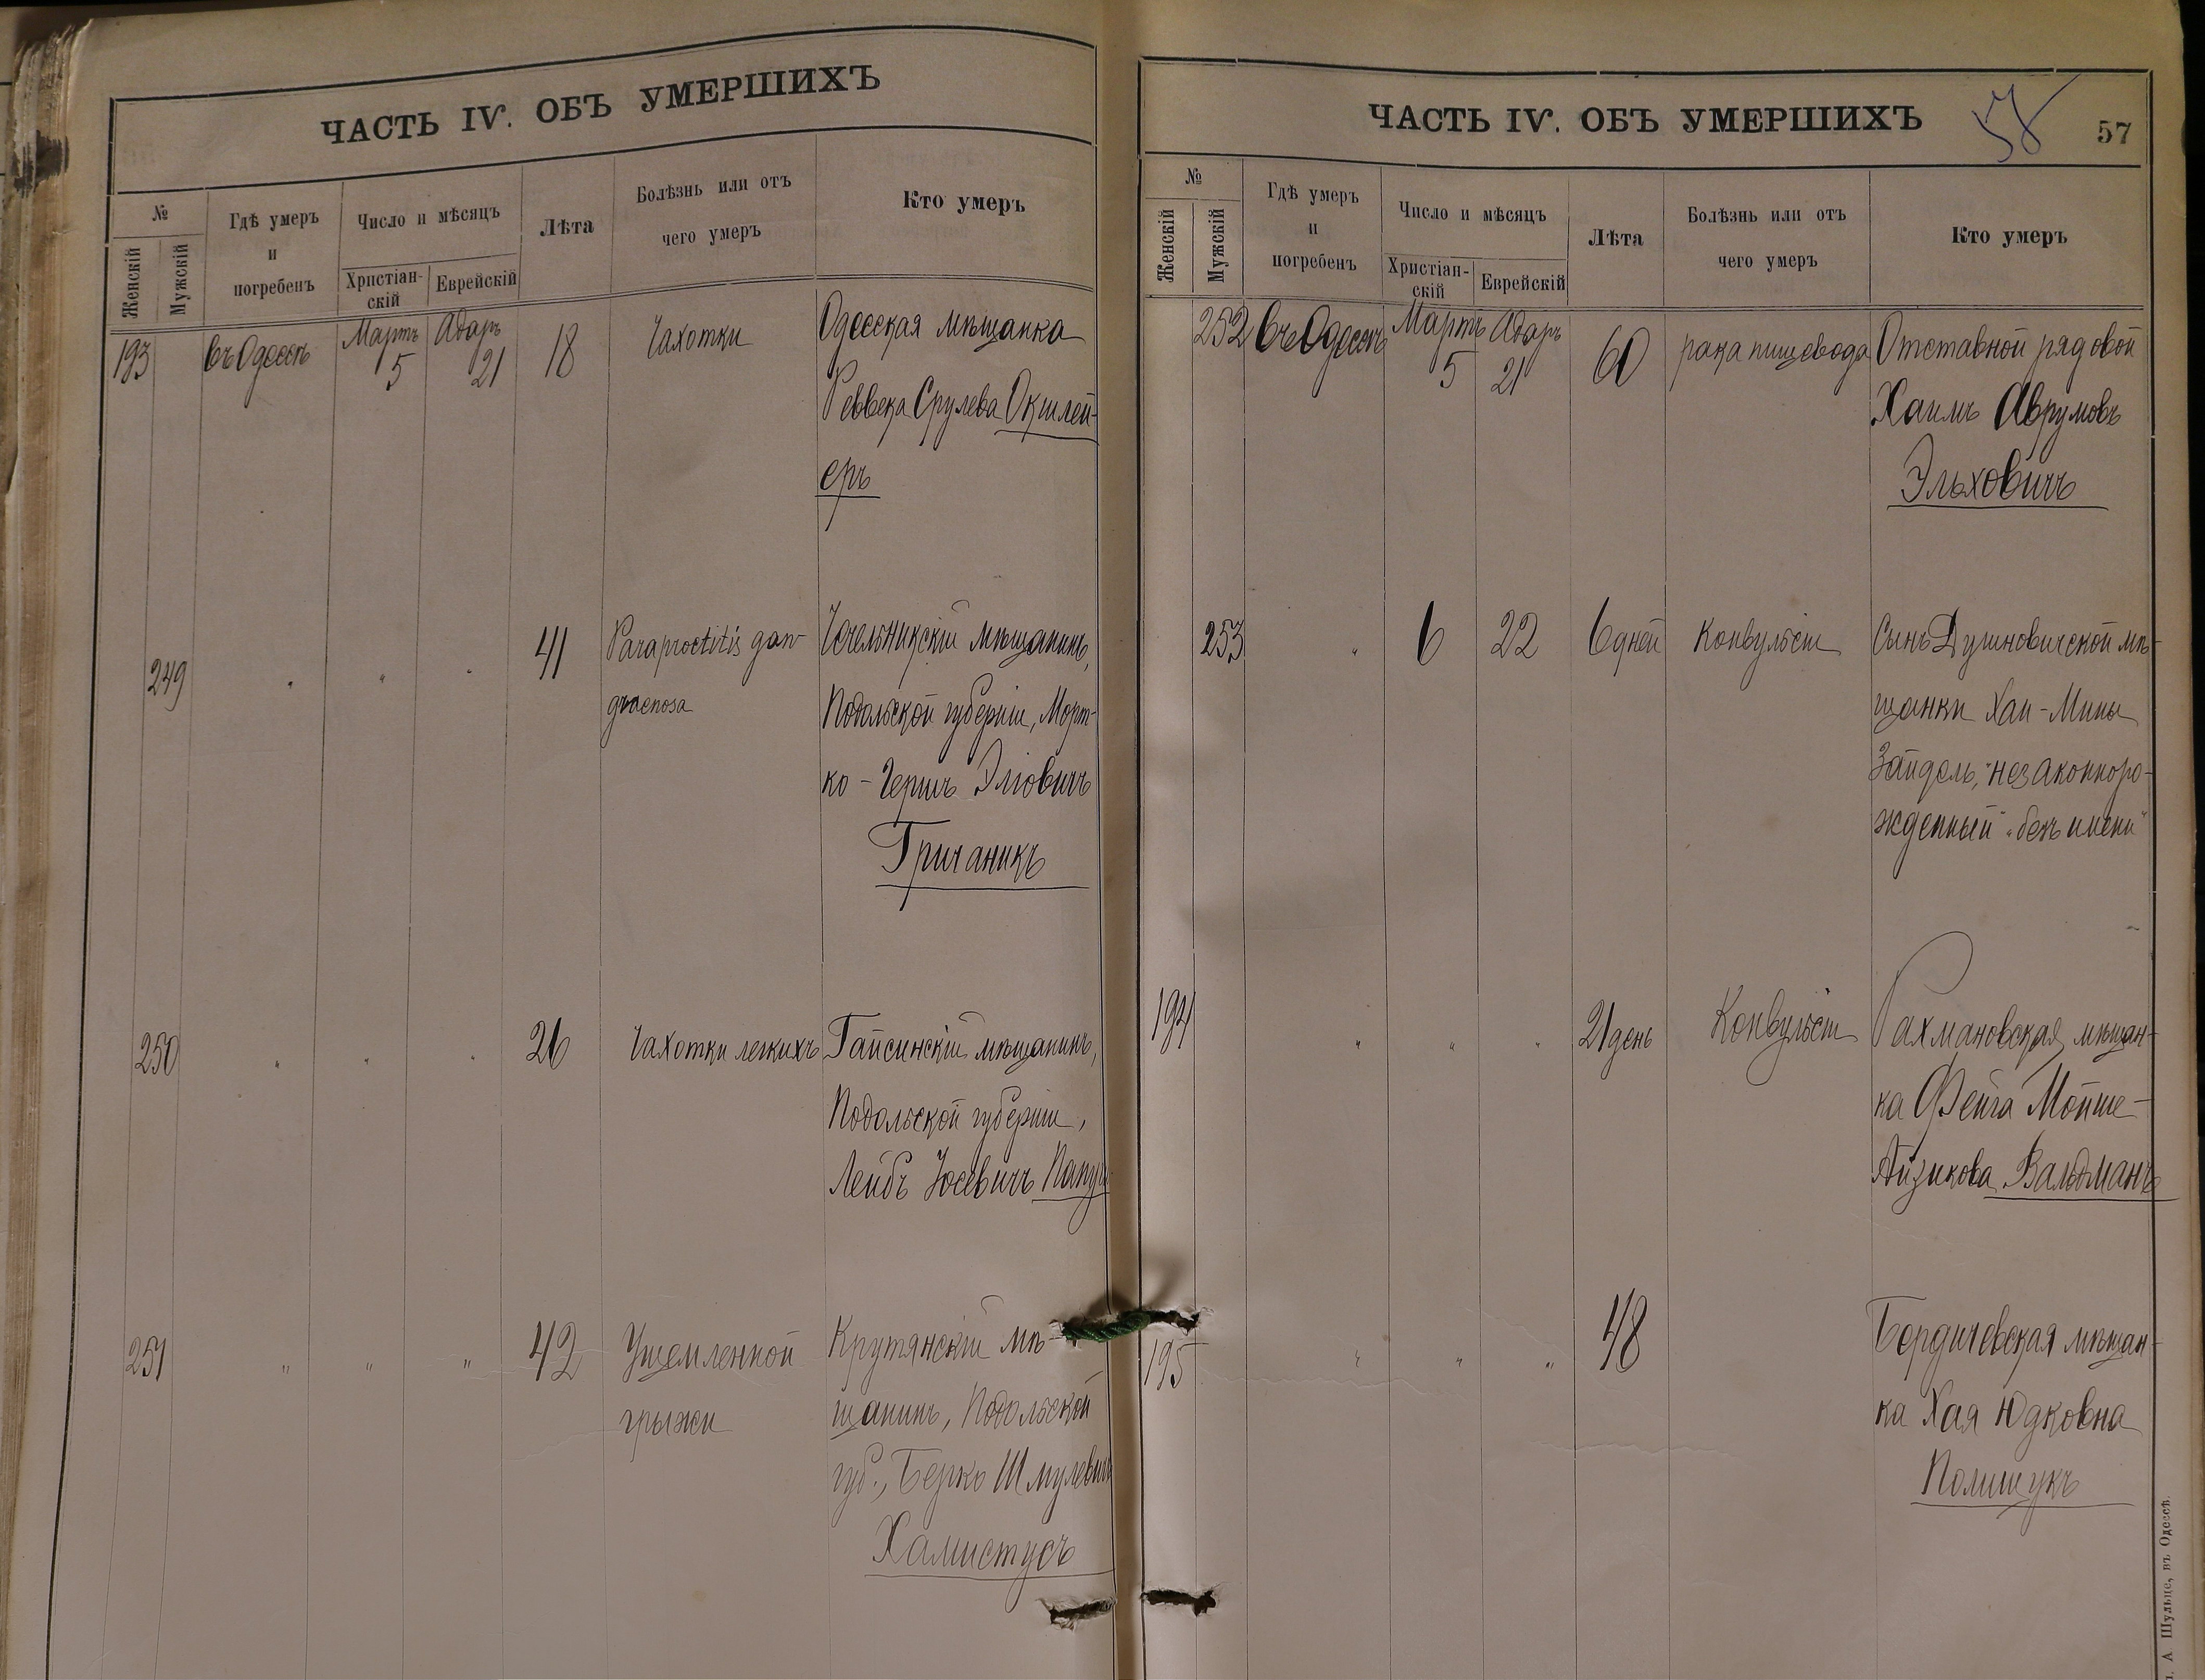 ЧАСТЬ IV. ОБЪ УМЕРШИХЪ
№
Женскій
Мужскій
Гдѣ умеръ
и
погребенъ
Число и мѣсяцъ
Христіан-
скій
Еврейскій
Лѣта
Болѣзнь или отъ
чего умеръ
Кто умеръ
193 въ Одессѣ Мартъ 5 Адаръ 21 18 Чахотки Одесская мѣщанка
Реввека Срулева Окшлей-
еръ
249 " " " 41 Paraproctitis gan- Чечельникскій мѣщанинъ,
graenosa Подольской губерніи, Морт-
ко-Гершъ Эліовичъ
Гричаникъ
250 " " " 26 Чахотки легкихъ Гайсинскій мѣщанинъ,
Подольской губерніи,
Лейбъ Іосевичъ
251 " " " 42 Ущемленной Крутянскій мѣ-
грыжи щанинъ, Подольской
губ., Берко Шмулевичъ
Хамистусъ
ЧАСТЬ IV. ОБЪ УМЕРШИХЪ
58
57
№
Женскій
Мужскій
Гдѣ умеръ
и
погребенъ
Число и мѣсяцъ
Христіан-
скій
Еврейскій
Лѣта
Болѣзнь или отъ
чего умеръ
Кто умеръ
252 въ Одессѣ Мартъ 5 Адаръ 21 60 рака пищевода Отставной рядовой
Хаимъ Аврумовъ
Эльховичъ
253 " 6 22 6 дней Конвульсіи Сынъ мѣ-
щанки Хаи-Мины
Зайдель, "незаконноро-
жденный" "безъ имени"
194 " " " 21 день Конвульсіи Рахмановская мѣщан-
ка Фейга Мойше-
Айзикова Вальдманъ
195 " " " 48 Бердичевская мѣщан-
ка Хая Юдковна
Полищукъ
А Шульце, въ Одессѣ.